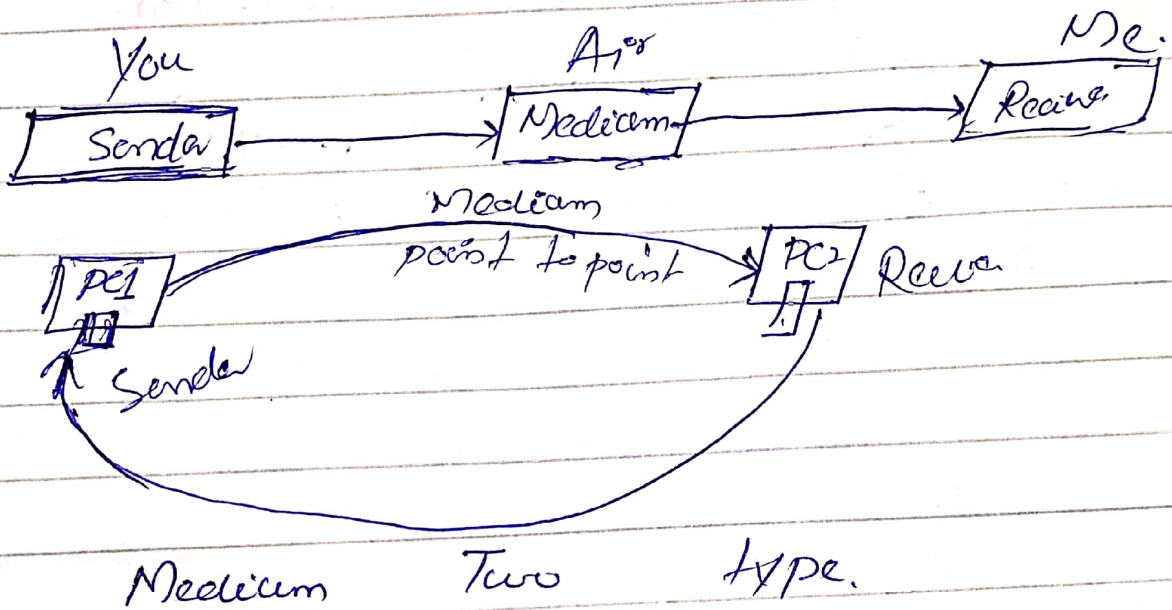 You Air Me.
Sender Medium Reciver
Medium
point to point
PC1 PC2 Recever
Sender
Medium Two type.